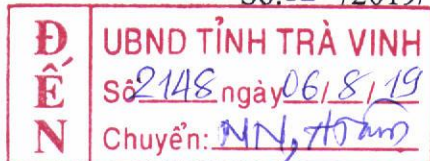 /2019/
ĐẾN
UBND TỈNH TRÀ VINH
Số 2148 ngày 06/8/19
Chuyển: NN,